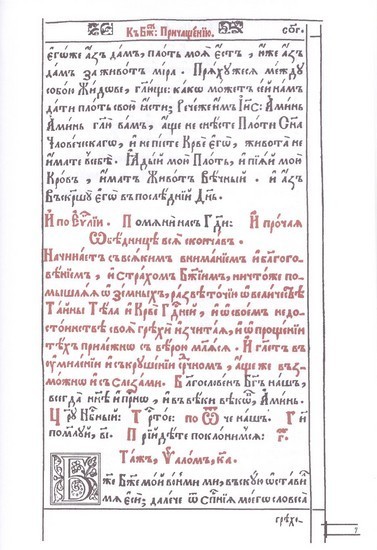 Къ Бж҃: Причащенїю. со҃г.
єгѡже а҆зъ да́мъ, пло́ть моѧ̀ є҆́стъ, ю҆́же а҆зъ
да́мъ за живо́тъ мі́ра. Прѧ́хꙋсѧ междꙋ̀
собо́й Жи́дове, гл҃юще: ка́кѡ мо́жетъ се́й на́мъ
да́ти пло́ть свою̀ ꙗ҆́сти; Рече́же и҆̀мъ Іи҃с: А҆ми́нь
А҆ми́нь гл҃ю ва́мъ, а҆́ще не снѣ́сте Пло́ти Сн҃а
Человѣ́ческагѡ, и҆ не пїе́те Кро́ве Є҆гѡ̀, живота̀ не
и҆́мате въ себѣ̀. Ꙗ҆ды́й мою̀ Пло́ть, и҆ пїѧ́й мою̀
Кро́вь, и҆́мать Живо́тъ Вѣ́чный. и҆ А҆́зъ
Воскрешꙋ̀ Є҆го̀ въ послѣ́днїй Дн҃ь.
И҆ по Єѵⷢ҇лїи. Помѧнѝ на́съ Гдⷭ҇и: И҆ про́чаѧ
Ѡ҆бѣ́дницы всѧ̀ сконча́въ.
Начина́етъ съ всѧ́кимъ внима́нїемъ и҆ благого-
вѣ́нїемъ, и҆ стра́хомъ Бж҃їимъ, ничто́же по-
мышлѧ́ѧ ѡ҆ зе́мныхъ, ра́звѣ то́чїю ѡ҆ вели́чествѣ
Та́йны Тѣ́ла и҆ Кро́ве Гдⷭ҇ней, и҆ ѡ҆ свое́мъ недо-
сто́инствѣ своѧ̀ грѣхѝ и҆счита́ѧ, и҆ ѡ҆ проще́нїи
тѣ́хъ прилѣ́жнѡ съ вѣ́рою молѧ́сѧ. И҆ гл҃етъ въ
ᲂу҆миле́нїи и҆ съкрꙋше́нїи срⷣчномъ, а҆́ще же въз-
мо́жнѡ и҆ съ слеза́ми. Благослове́нъ Бг҃ъ на́шъ,
всегда̀ нн҃ѣ и҆ при́снѡ, и҆ въ вѣ́ки вѣкѡ́въ, А҆ми́нь.
Цр҃ю Нбⷭ҇ный: Трⷭ҇то́е: по Ѿче на́шъ. Гдⷭ҇и
поми́лꙋй, в҃і. Прїиди́те поклони́мсѧ: г҃.
Та́же, Ѱало́мъ, к҃а.
Бж҃е Бж҃е мо́й вонмѝ мѝ, въскꙋ́ю ѡ҆ста́ви
мѧ є҆сѝ; дале́че ѿ Сп҃се́нїѧ моегѡ̀ словеса̀
грѣхо
7